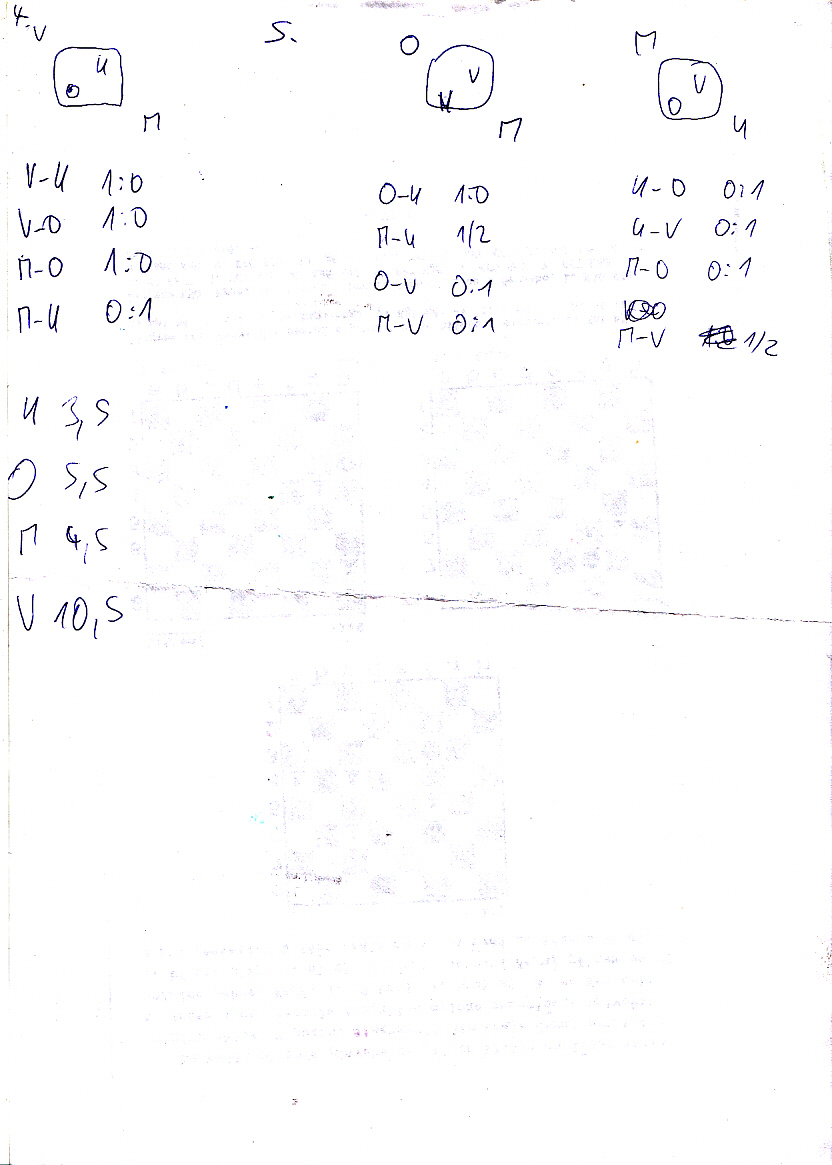 4.
V
И
О
П
V-И 1:0
V-О 1:0
П-О 1:0
П-И 0:1
5.
О
V
И
П
О-И 1:0
П-И 1/2
О-V 0:1
П-V 0:1
П
V
О
И
И-О 0:1
И-V 0:1
П-О 0:1
П-V 1/2
И 3,5
О 5,5
П 4,5
V 10,5